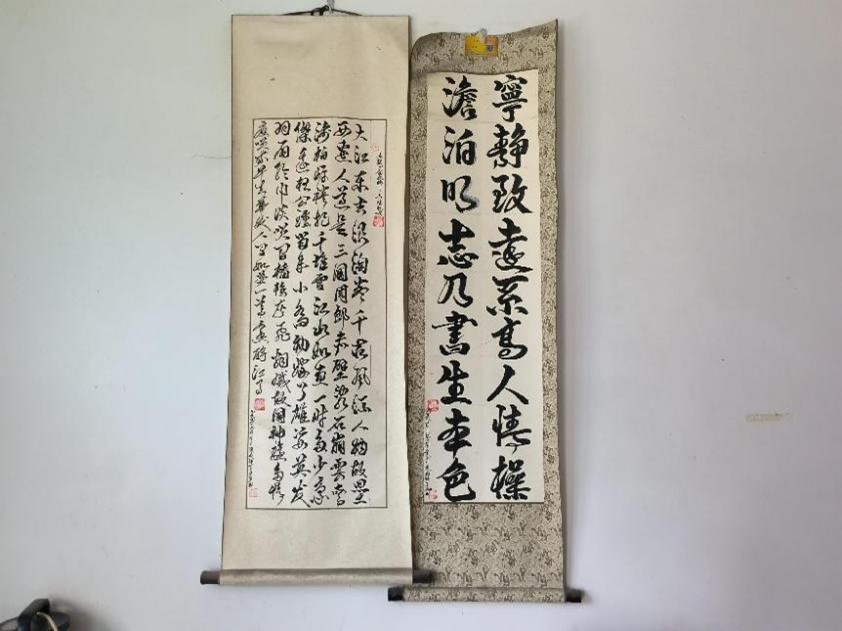 寧靜致遠系高人情操
澹泊明志乃書生本色
大江东去浪淘尽千古风流人物故垒
西邊人道是三國周郎赤壁乱石崩雲驚
涛拍岸捲起千堆雪江山如画一时多少豪
傑遥想公瑾当年小乔初嫁了雄姿英发
羽扇纶巾谈笑间樯橹灰飞烟灭故国神遊多情
应笑我早生华发人间如梦一尊还酹江月